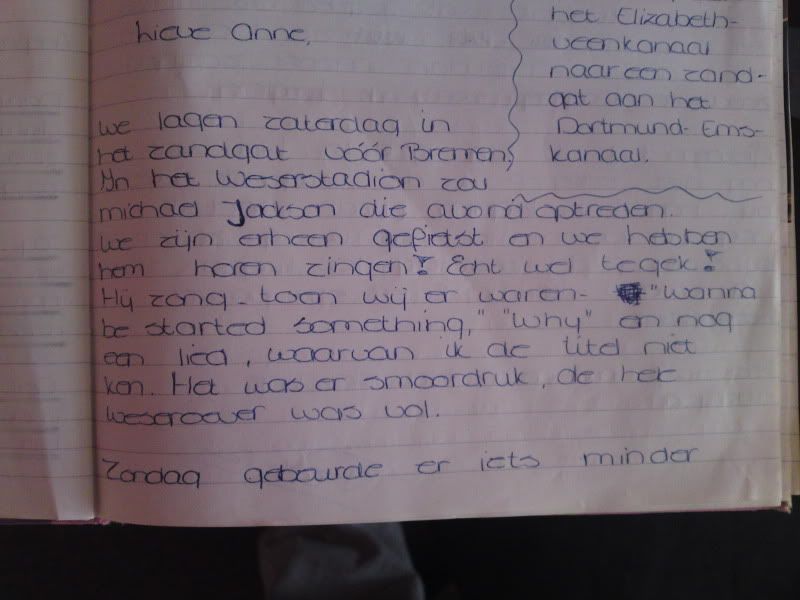 Lieve Anne,
het Elizabeth-
veenkanaal
naar een zand-
gat aan het
Dortmund-Ems-
kanaal.
we lagen zaterdag in
het zandgat vóór Bremen,
In het Weserstadion zou
michael Jackson die avond optreden.
we zijn erheen gefietst en we hebben
hem horen zingen! Echt wel te gek!
Hij zong - toen wij er waren - "wanna
be started something," "Why" en nog
een lied, waarvan ik de titel niet
ken. Het was er smoordruk, de hele
weseroever was vol.
Zondag gebeurde er iets minder